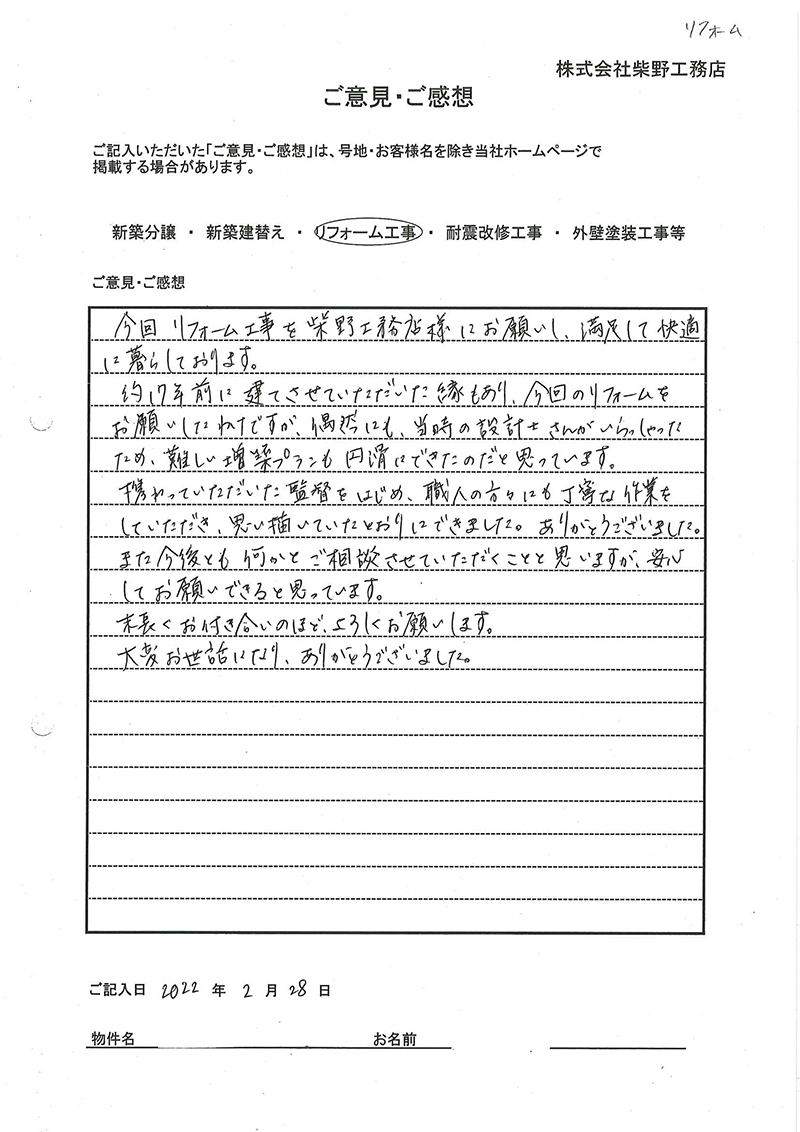 リフォーム
株式会社柴野工務店
ご意見・ご感想
ご記入いただいた「ご意見・ご感想」は、号地・お客様名を除き当社ホームページで
掲載する場合があります。
新築分譲 ・ 新築建替え ・ リフォーム工事 ・ 耐震改修工事 ・ 外壁塗装工事等
ご意見・ご感想
今回 リフォーム工事を柴野工務店様にお願いし、満足して快適
に暮らしております。
約17年前に建てさせていただいた縁もあり、今回のリフォームを
お願いしたわけですが、偶然にも、当時の設計士さんがいらっしゃった
ため、難しい増築プランも円滑にできたのだと思っています。
携わっていただいた監督をはじめ、職人の方々にも丁寧な作業を
していただき、思い描いていたとおりにできました。ありがとうございました。
また今後とも何かとご相談させていただくことと思いますが、安心
してお願いできると思っています。
末長くお付き合いのほど、よろしくお願いします。
大変お世話になり、ありがとうございました。
ご記入日 2022 年 2 月 28 日
物件名 お名前